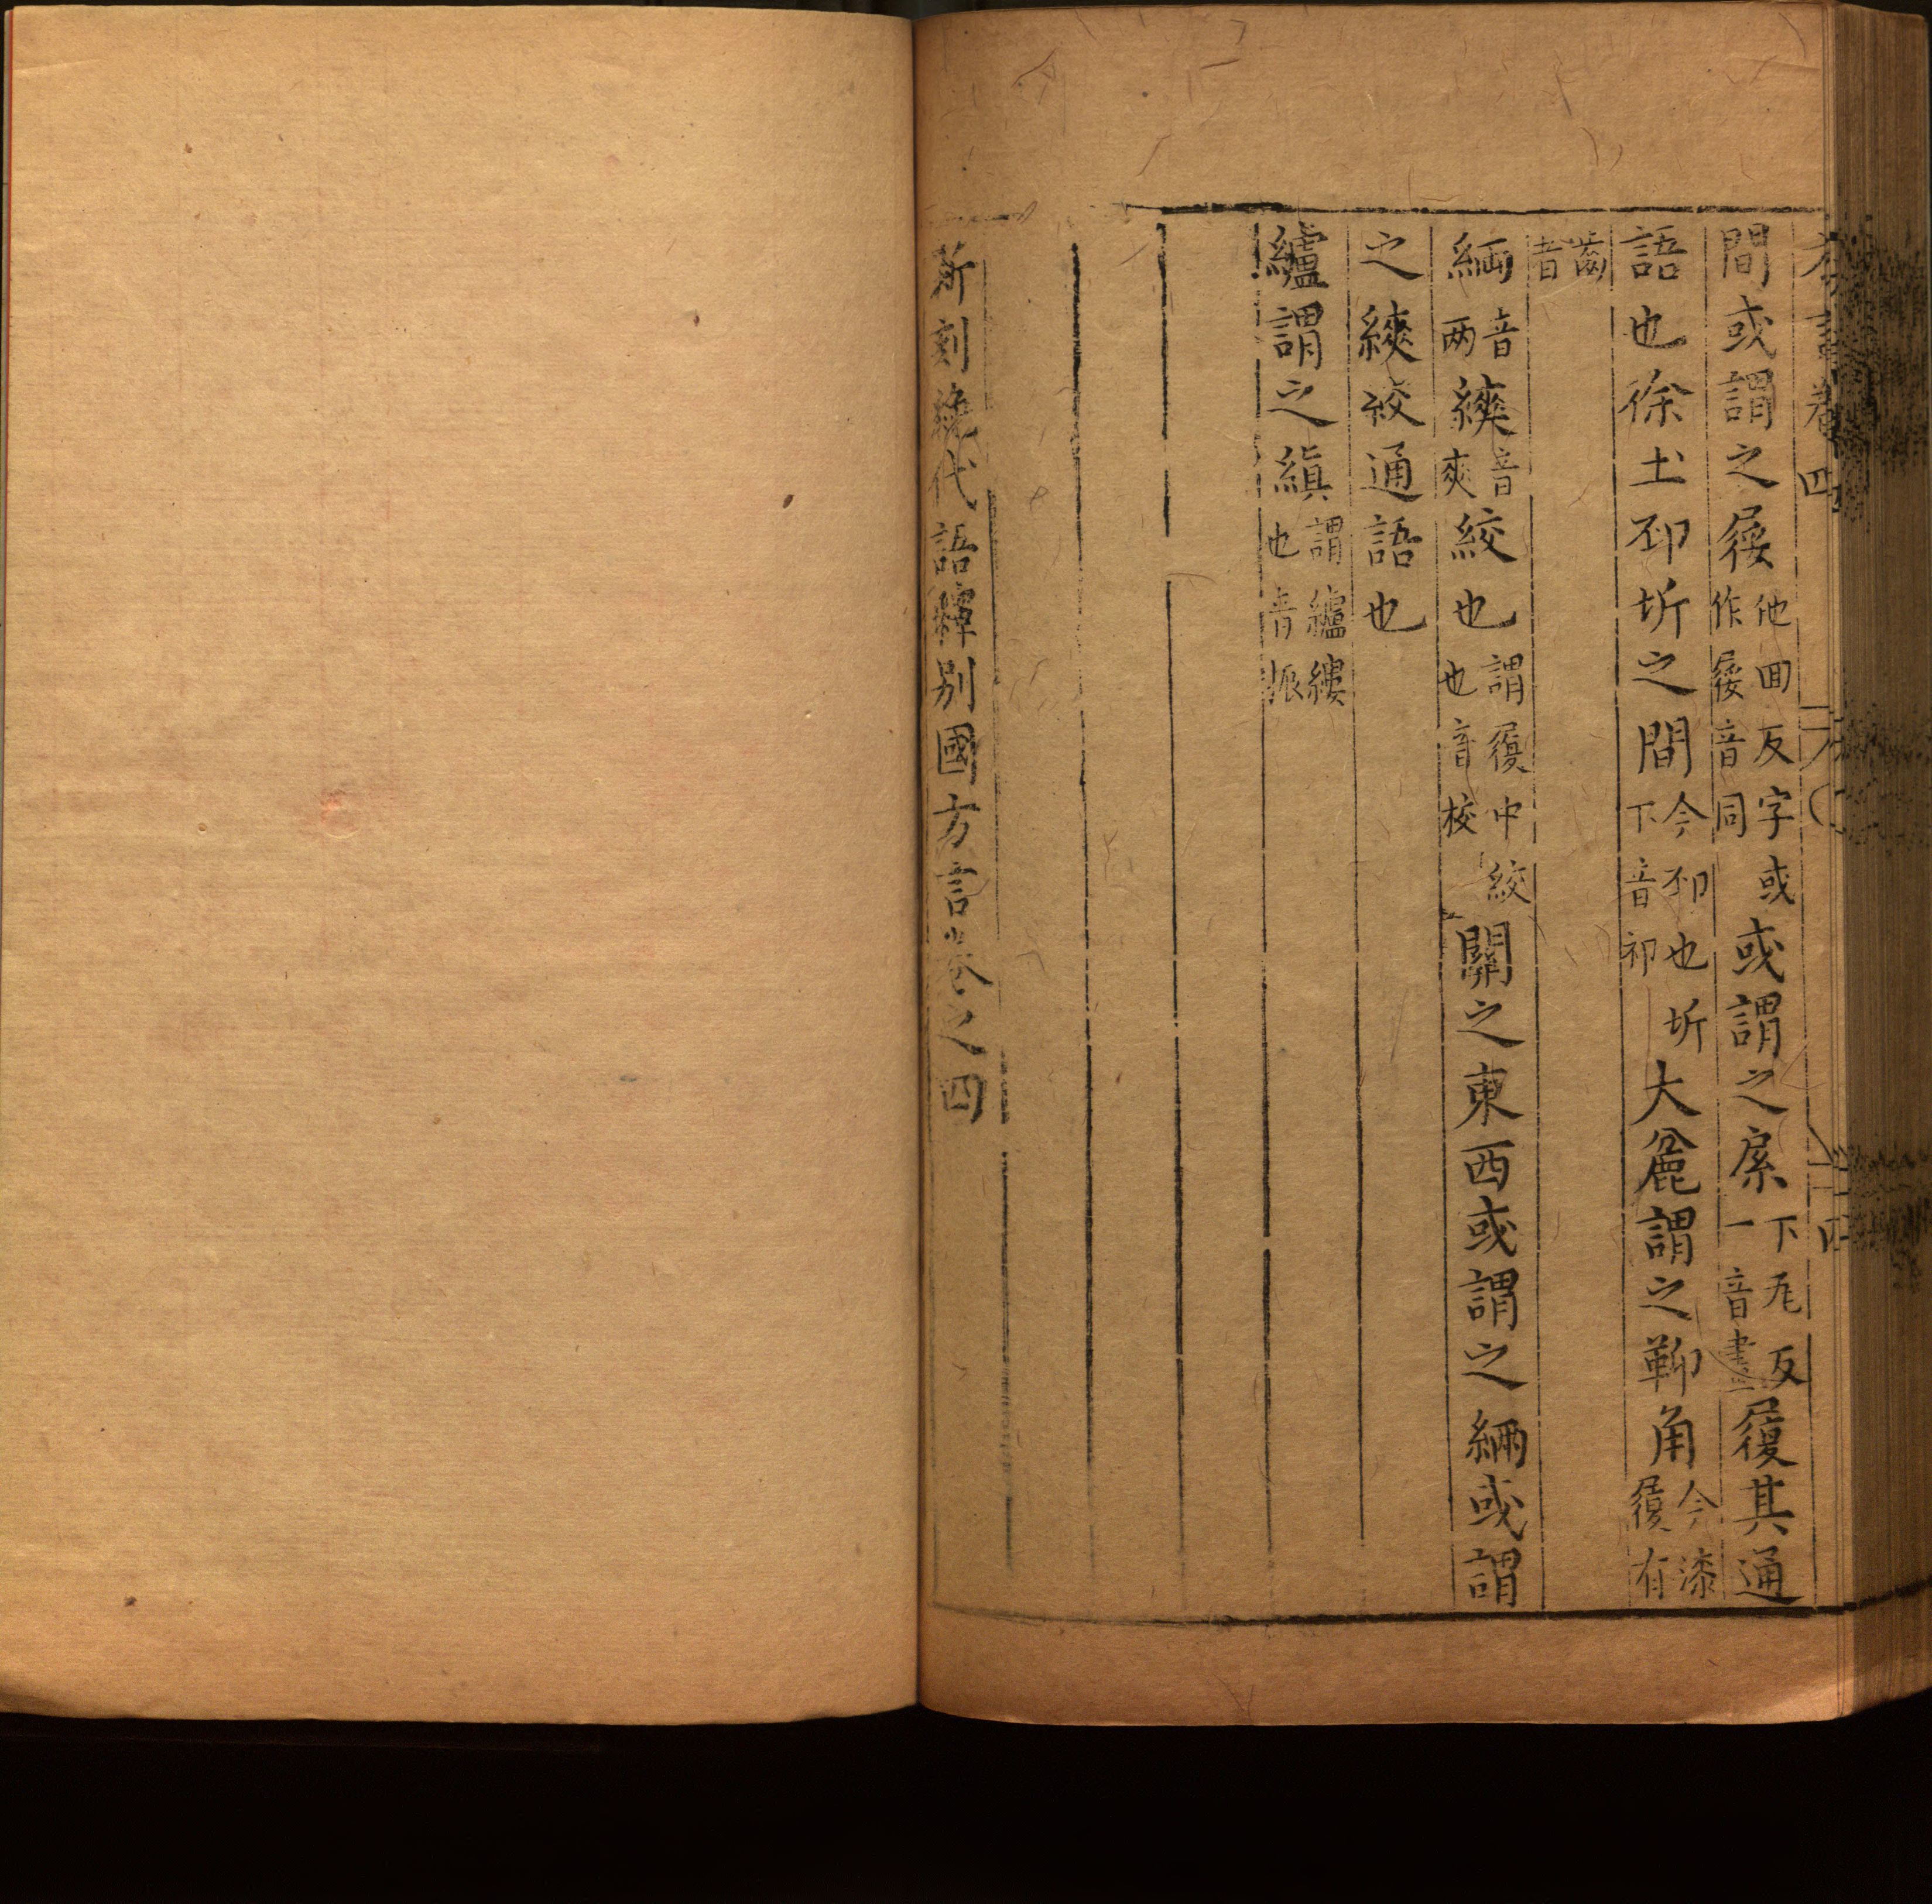 方言卷四
間或謂之𡲆他回反字或作屦音同或謂之㡞下瓦反一音畫履其通
語也徐土邳圻之間今邳也圻下音祁大麄謂之䩕角今漆履有
齒者
緉音两緓音爽絞也謂履中絞也音校關之東西或謂之緉或謂
之緓絞通語也
纑謂之縝謂纑縷也音振
新刻絶代語釋别國方言卷之四